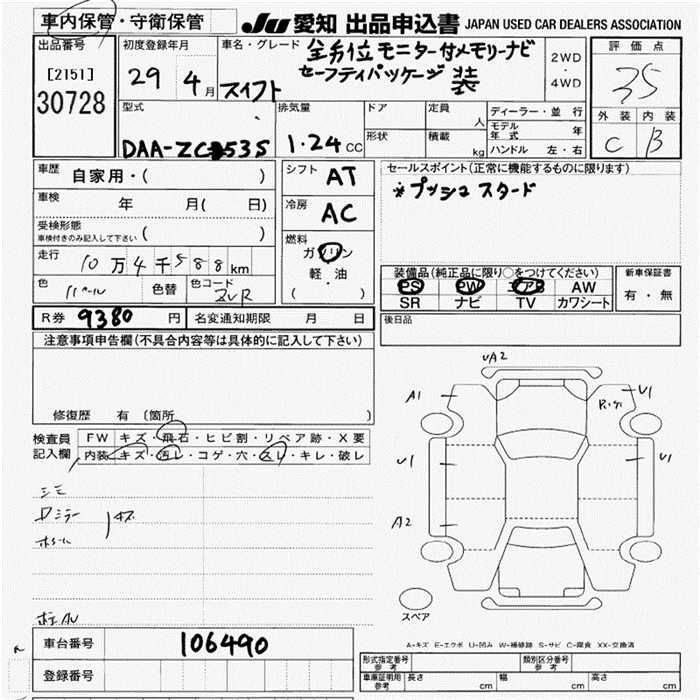 車内保管・守衛保管 JU 愛知 出品申込書 JAPAN USED CAR DEALERS ASSOCIATION
出品番号
[2151]
30728
初度登録年月
29 4月
車名・グレード 全方位モニター付メモリーナビ
セーフティパッケージ装
スイフト
2WD
・
4WD
評価点
3.5
外装 内装
C B
型式
DAA-ZC53S
排気量
1.24 CC
ドア
形状
定員 人
積載 kg
ディーラー・並行
モデル年式 年
ハンドル 左・右
車歴 自家用・( )
車検 年 月( 日)
受検形態
車検付きのみ記入して下さい ( )
走行 10万4千588km
色 パール 色替 色コード ZVR
シフト AT
冷房 AC
燃料
ガソリン
軽・油
( )
セールスポイント(正常に機能するものに限ります)
※プッシュスタード
装備品(純正品に限り○をつけてください)
PS PW エアB AW
SR ナビ TV カワシート
新車保証書
有・無
R券 9380 円 名変通知期限 月 日
後日品
注意事項申告欄(不具合内容等は具体的に記入して下さい)
修復歴 有 〔箇所 〕
検査員記入欄
FW キズ・飛石・ヒビ割・リペア跡・X要
内装 キズ・汚レ・コゲ・穴・スレ・キレ・破レ
UA2
A1
U1
U1
U1
A2
スペア
A-キズ E-エクボ U-凹み W-補修跡 S-サビ C-腐食 XX-交換済
車台番号 106490
登録番号
形式指定番号 参考
類別区分番号 参考
車庫証明用 参考 長さ cm 幅 cm 高さ cm